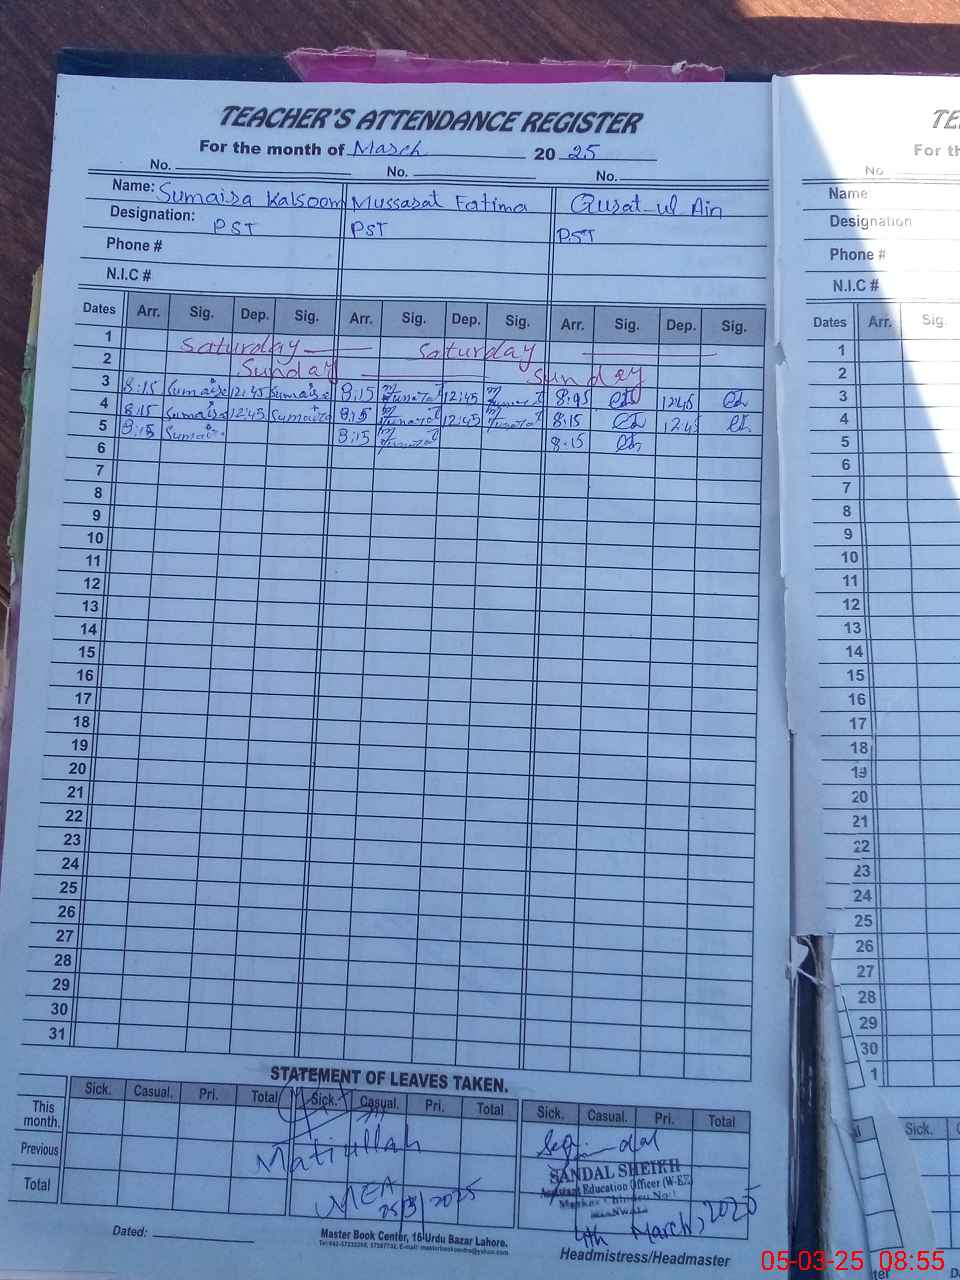 TEACHER'S ATTENDANCE REGISTER
For the month of March 20 25
No. No. No.
Name: Sumaira Kalsoom Mussarat Fatima Qurat-ul Ain
Designation: PST PST PST
Phone #
N.I.C #
Dates Arr. Sig. Dep. Sig. Arr. Sig. Dep. Sig. Arr. Sig. Dep. Sig.
1 Saturday Saturday
2 Sunday Sunday
3 8:15 Sumaira 12:45 Sumaira 8:15 12:45 12:45
4 8:15 Sumaira 12:45 Sumaira 8:15 12:45 8:15
5 8:15 Sumaira 8:15 8:15
6
7
8
9
10
11
12
13
14
15
16
17
18
19
20
21
22
23
24
25
26
27
28
29
30
31
STATEMENT OF LEAVES TAKEN.
Sick. Casual. Pri. Total Sick. Casual. Pri. Total Sick. Casual. Pri. Total
This month.
Previous
Total
Matiullah
MEA
2025
SANDAL SHEIKH
Assistant Education Officer (W-EE)
4th March, 2025
Dated:
Master Book Center, 16-Urdu Bazar Lahore.
Headmistress/Headmaster
TE
For th
No
Name
Designation
Phone #
N.I.C #
Dates Arr. Sig.
1
2
3
4
5
6
7
8
9
10
11
12
13
14
15
16
17
18
19
20
21
22
23
24
25
26
27
28
29
30
1
Sick. C
05-03-25 08:55